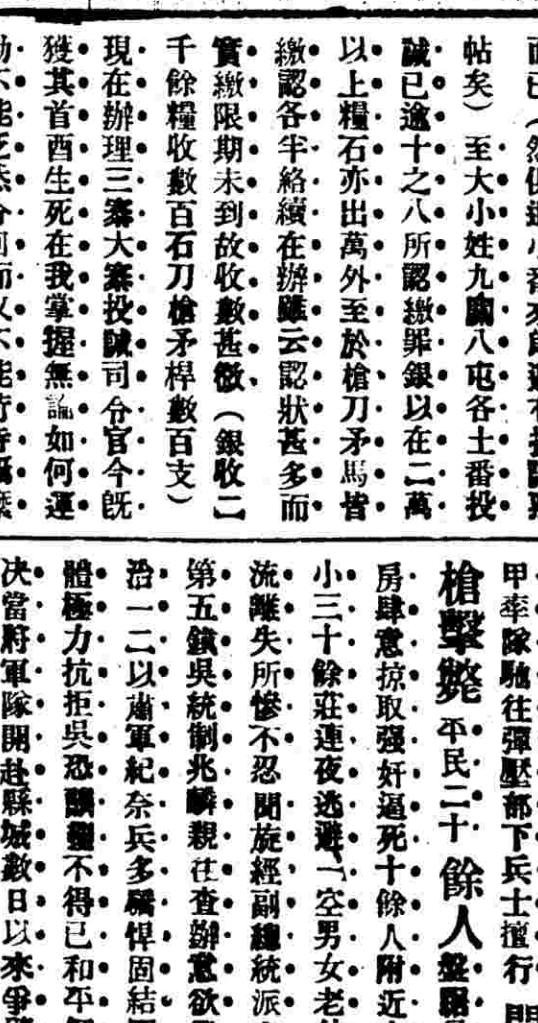 帖矣）至大小姓九關八屯各土番投
誠已逾十之八所認繳罪銀以在二萬
以上糧石亦出萬外至於槍刀矛馬皆
繳認各半絡續在辦雖云認狀甚多而
實繳限期未到故收數甚微（銀收二
千餘糧收數百石刀槍矛桿數百支）
現在辦理三寨大寨投誠司令官今既
獲其首酋生死在我掌握無論如何運
動不能
甲率隊馳往彈壓部下兵士擅行
槍擊斃平民二十餘人盤踞
房肆意掠取强奸逼死十餘人附近
小三十餘莊連夜逃避一空男女老
流離失所慘不忍聞旋經副總統派
第五鎮吳統制兆麟親往查辦意欲
治一二以肅軍紀奈兵多驕悍固結
體極力抗拒吳恐釀變不得已和平
决當將軍隊開赴縣城數日以來爭